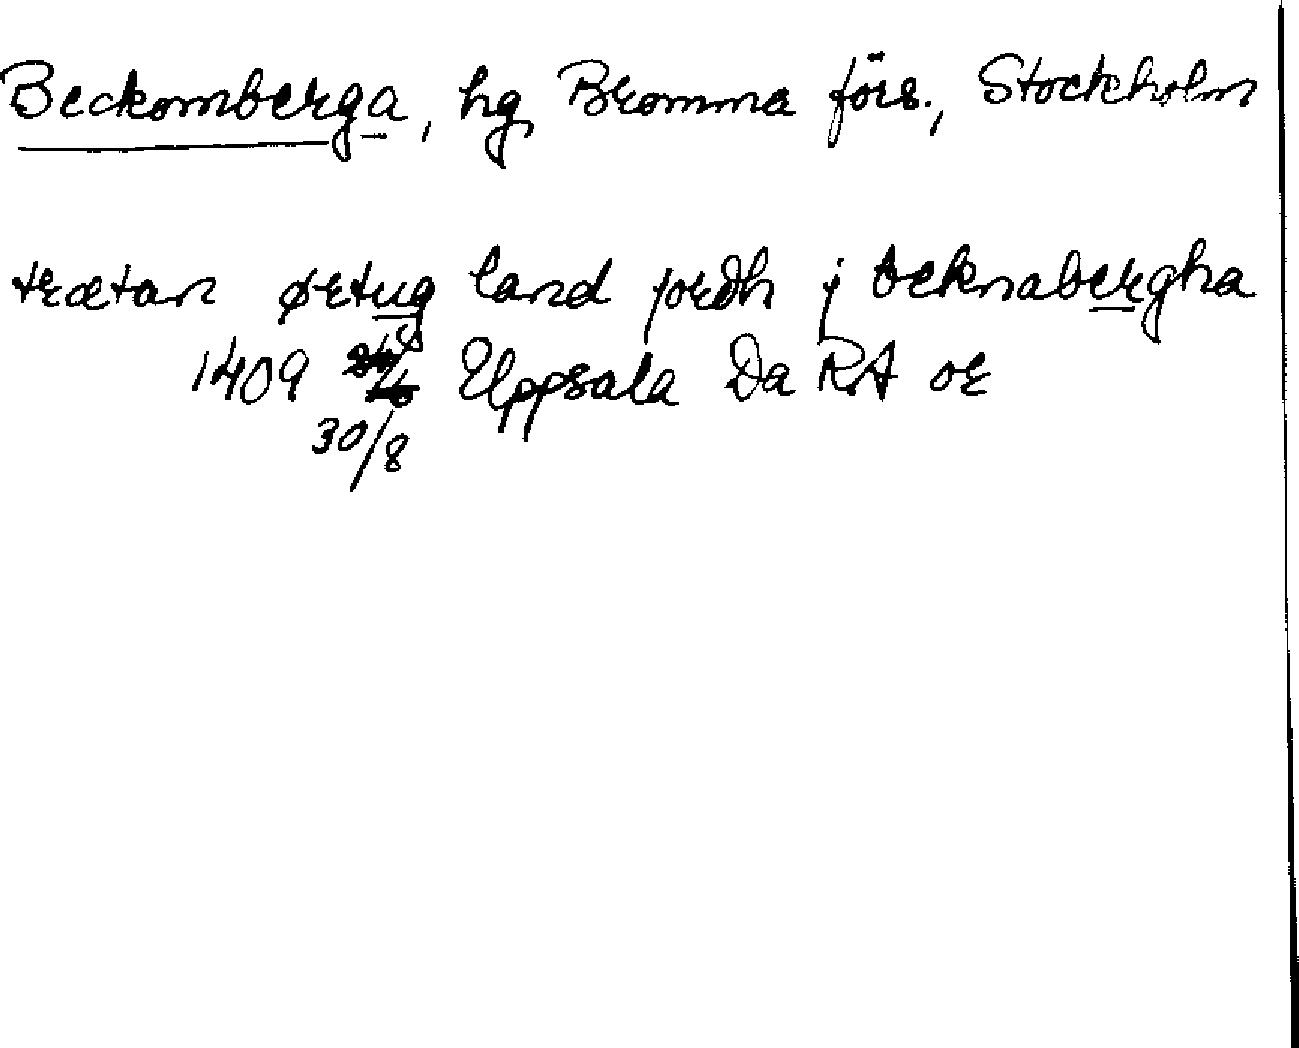 Beckomberga, hg Bromma förs., Stockholm
trætan ørtug land jordh j beknabergha
1409 Uppsala Da RA or
30/8